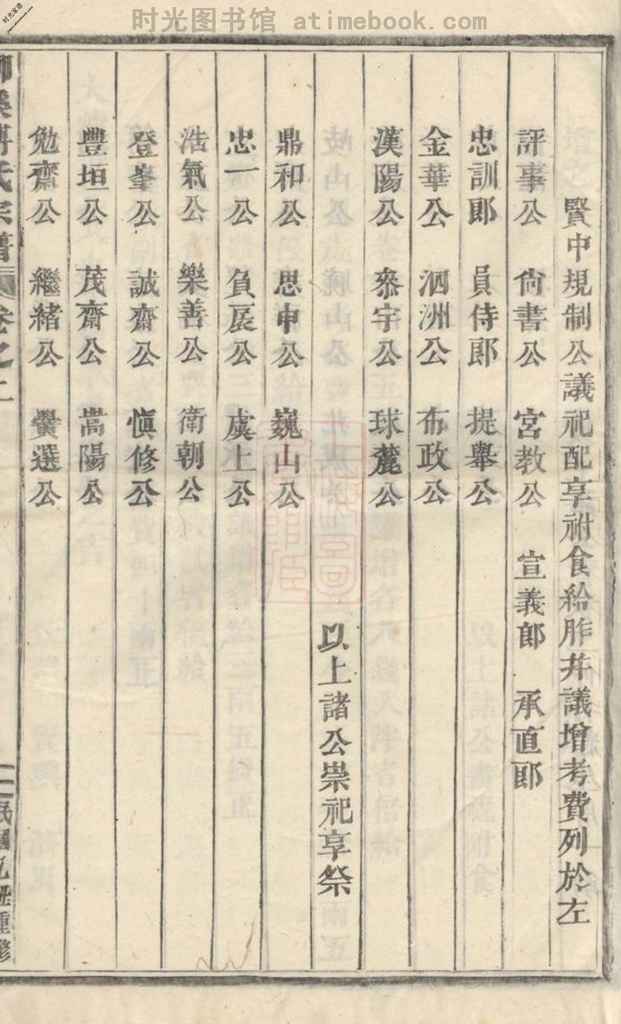 时光图书馆 atimebook.com
时光家谱
賢中規制公議祀配享祔食給胙并議增考費列於左
評事公 尙書公 宮教公 宣義郎 承直郎
忠訓郎 員侍郎 提舉公
金華公 泗洲公 布政公
漢陽公 叅宇公 球麓公
以上諸公崇祀享祭
鼎和公 思中公 巍山公
忠一公 負扆公 虞上公
浩氣公 樂善公 衛朝公
登峯公 誠齋公 愼修公
豐垣公 茂齋公 嵩陽公
勉齋公 繼緒公 黌選公
傅氏宗譜 卷之二 一 民國 重修